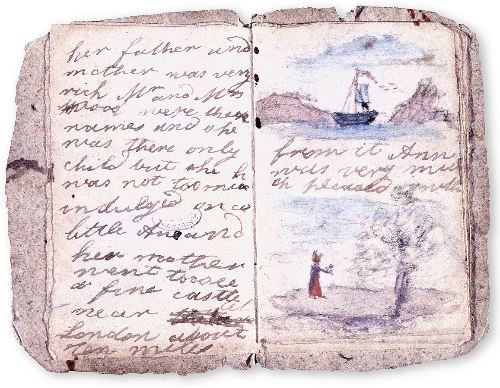 her father and
mother was very
rich Mr and Mrs
Wood were there
names and she
was there only
child but she h
was not tomuc
indulged once
little Ane and
her mother
went to see
a fine castle
near
London about
ten miles
from it Ann
was very mu
ch pleased with